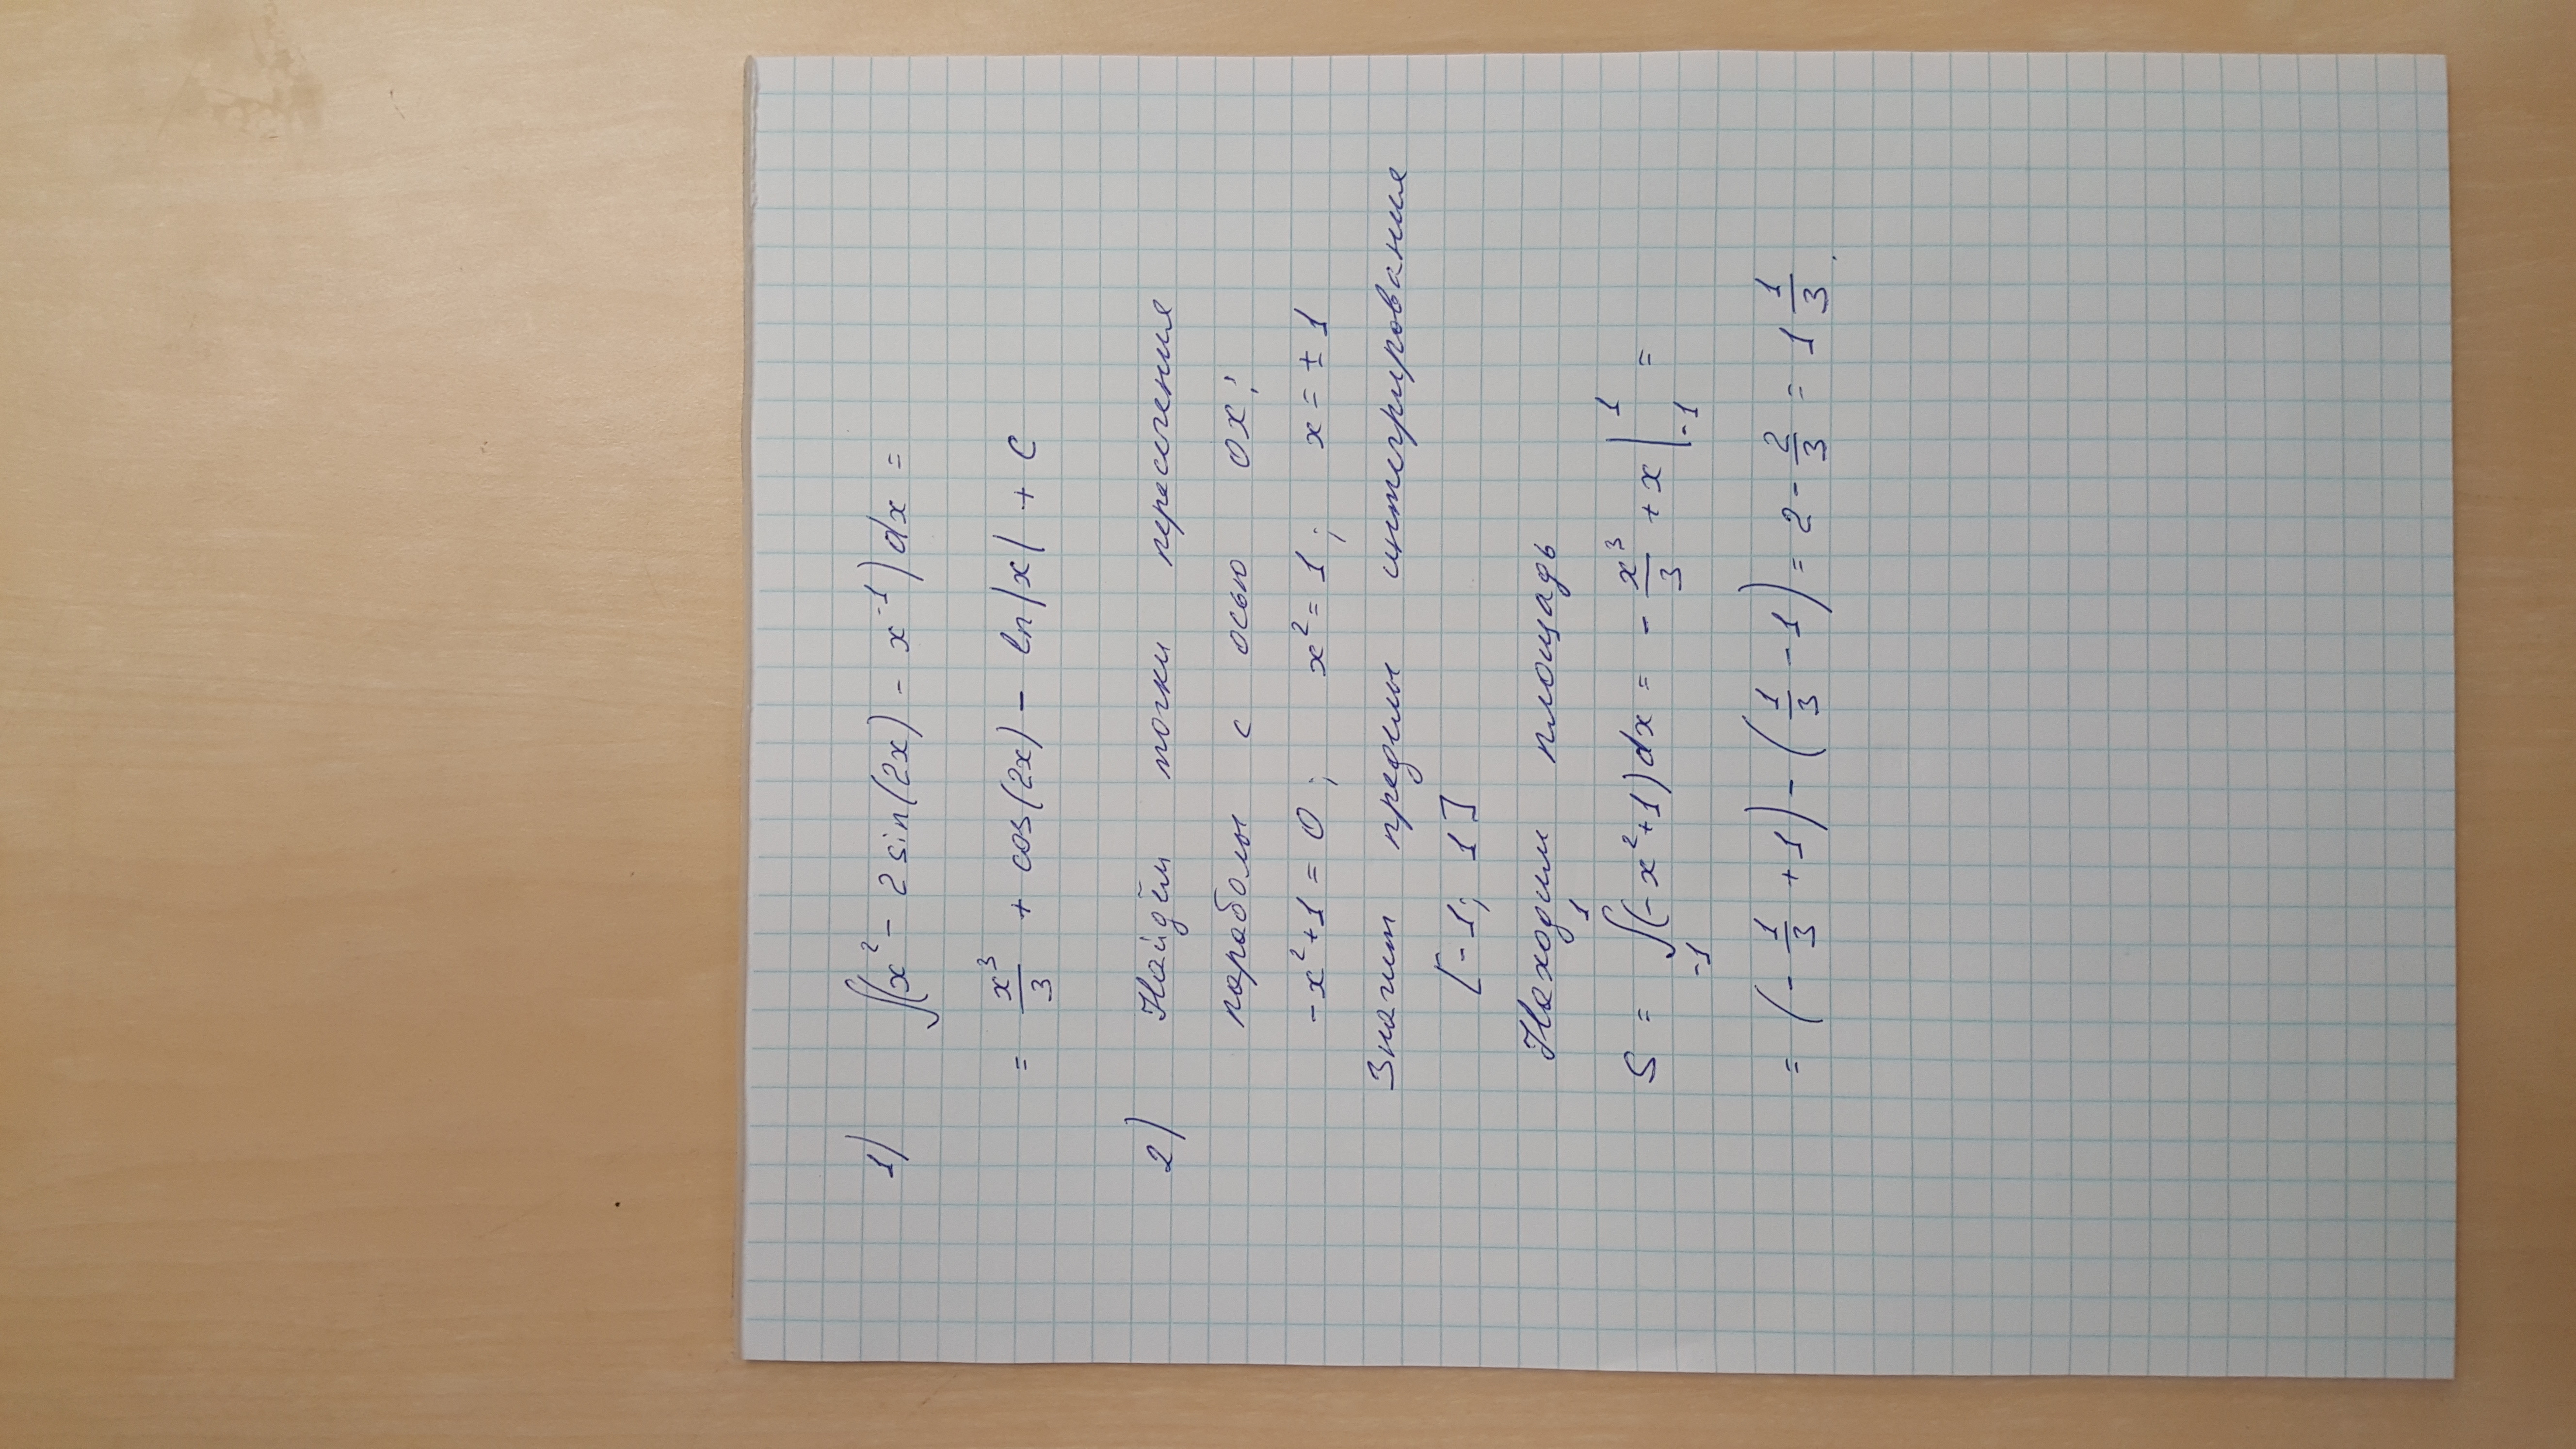 1) ∫(x² - 2 sin(2x) - x⁻¹)dx =
= x³/3 + cos(2x) - ln|x| + C
2) Найдём точки пересечения
параболы с осью ОХ;
-x²+1 = 0; x² = 1; x = ± 1
Значит пределы интегрирования
[-1; 1]
Находим площадь
S = ∫₋₁¹(-x²+1)dx = - x³/3 + x |₋₁¹ =
= (-1/3 + 1) - (1/3 - 1) = 2 - 2/3 = 1 1/3.